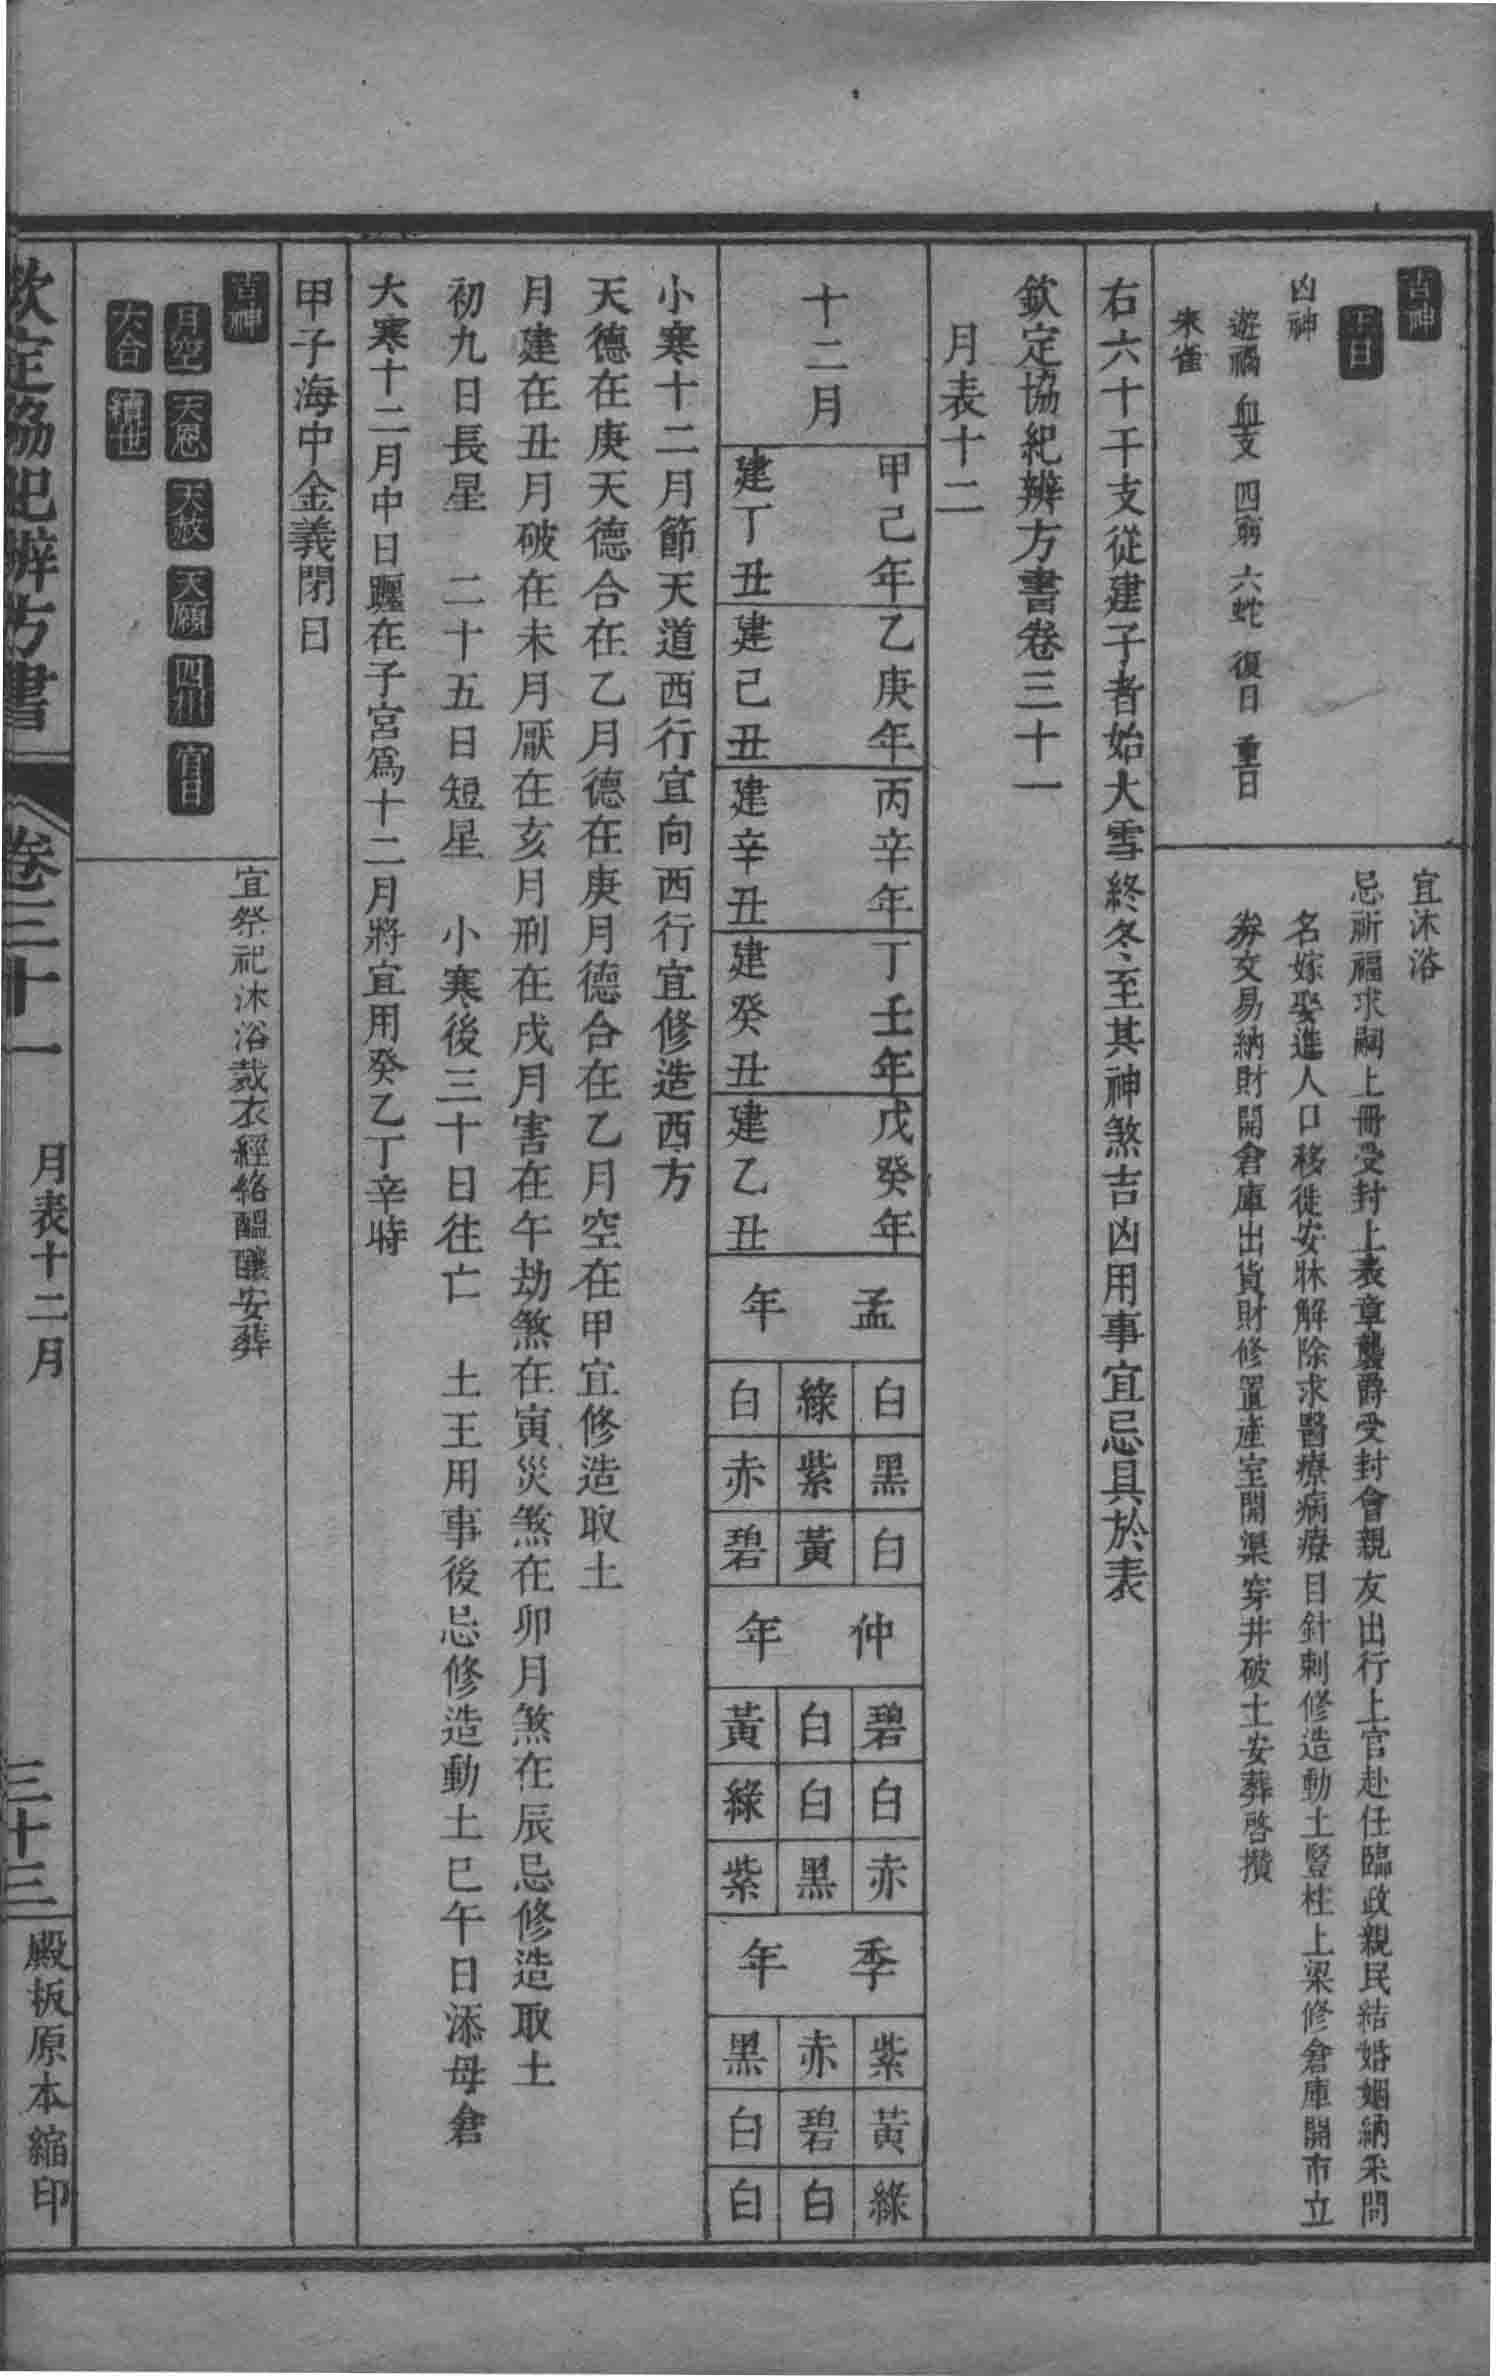 吉神
王日
凶神
遊禍 血支 四窮 六蛇 復日 重日
朱雀
宜沐浴
忌祈福求嗣上冊受封上表章襲爵受封會親友出行上官赴任臨政親民結婚姻納采問
名嫁娶進人口移徙安牀解除求醫療病療目針刺修造動土豎柱上梁修倉庫開市立
券交易納財開倉庫出貨財修置產室開渠穿井破土安葬啓攢
右六十干支從建子者始大雪終冬至其神煞吉凶用事宜忌具於表
欽定協紀辨方書卷三十一
月表十二
十二月
甲己年 建丁丑
乙庚年 建己丑
丙辛年 建辛丑
丁壬年 建癸丑
戊癸年 建乙丑
孟年
白 綠 白
黑 紫 赤
白 黃 碧
仲年
碧 白 黃
白 白 綠
赤 黑 紫
季年
紫 赤 黑
黃 碧 白
綠 白 白
小寒十二月節天道西行宜向西行宜修造西方
天德在庚天德合在乙月德在庚月德合在乙月空在甲宜修造取土
月建在丑月破在未月厭在亥月刑在戌月害在午劫煞在寅災煞在卯月煞在辰忌修造取土
初九日長星 二十五日短星 小寒後三十日往亡 土王用事後忌修造動土巳午日添母倉
大寒十二月中日躔在子宮爲十二月將宜用癸乙丁辛時
甲子海中金義閉日
吉神
月空 天恩 天赦 天願 四相 官日
六合 續世
宜祭祀沐浴裁衣經絡醞釀安葬
欽定協紀辨方書 卷三十一 月表十二月 三十三 殿板原本縮印